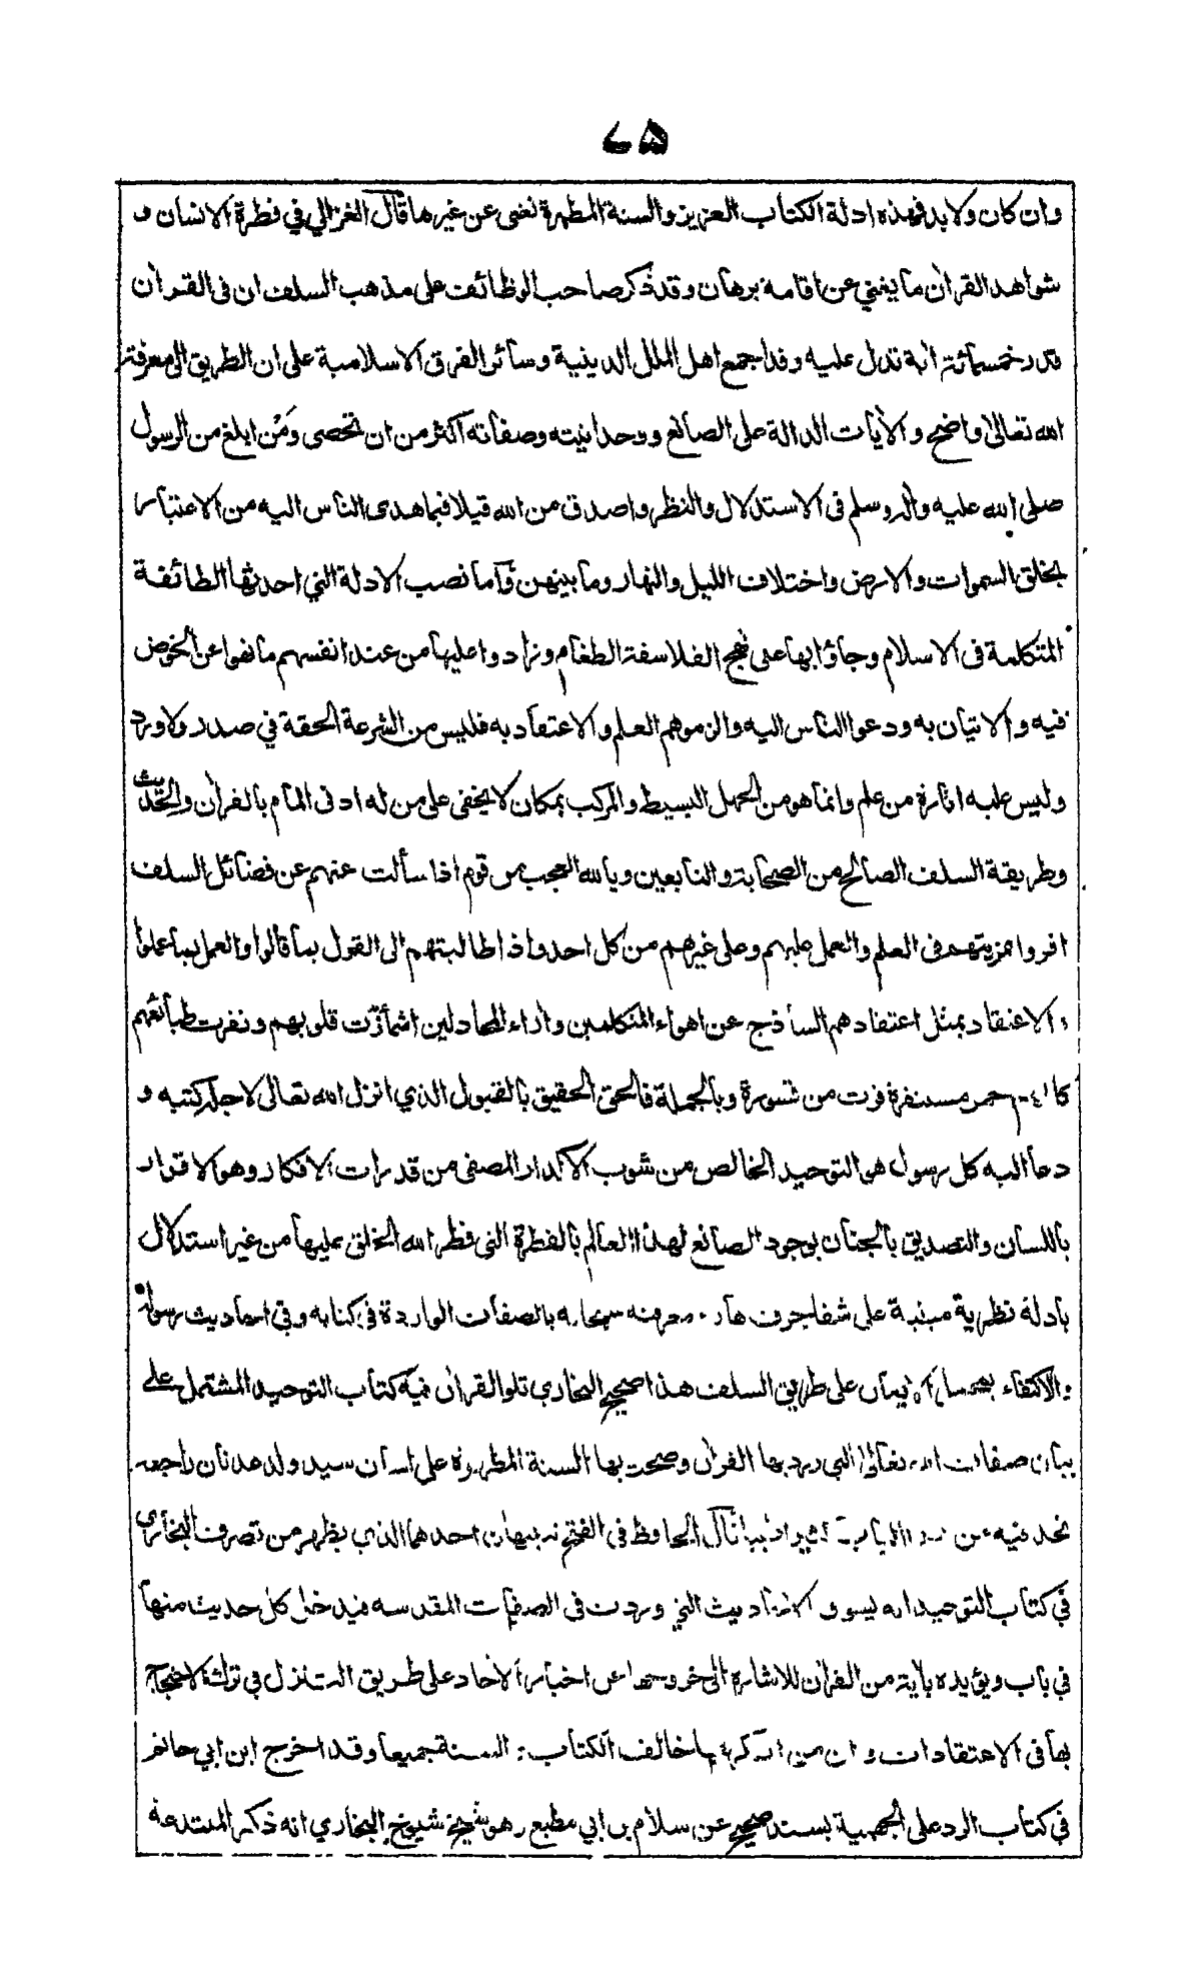 ٧٥
وان كان ولا بد فهذه ادلة الكتاب العزيز والسنة المطهرة تغنى عن غيرها قال الغزالي في فطرة الانسان و
شواهد القران ما يغني عن اقامة برهان وقد ذكر صاحب الوظائف على مذهب السلف ان فى القران
قدر خمسمائة اية تدل عليه وقد اجمع اهل الملل الدينية وسائر الفرق الاسلامية على ان الطريق الى معرفة
الله تعالى واضح والآيات الدالة على الصانع ووحدانيته وصفاته اكثر من ان تحصى ومَن ابلغ من الرسول
صلى الله عليه واله وسلم فى الاستدلال والنظر واصدق من الله قيلا فبما هدى الناس اليه من الاعتبار
بخلق السموات والارض واختلاف الليل والنهار وما بينهن وآما نصب الادلة التي احدثها الطائفة
المتكلمة فى الاسلام وجاؤا بها على نهج الفلاسفة الطغام وزادوا عليها من عند انفسهم ما نهوا عن الخوض
فيه والاتيان به ودعوا الناس اليه والزموهم العلم والاعتقاد به فليس من الشرعة الحقة في صدر ولا ورد
وليس عليه اثارة من علم وانما هو من الجهل البسيط والمركب بمكان لا يخفى على من له ادنى المام بالقران والحديث
وطريقة السلف الصالح من الصحابة والتابعين ويالله العجب من قوم اذا سألت عنهم عن فضائل السلف
اقروا بمزيتهم فى العلم والعمل عليهم وعلى غيرهم من كل احد واذا طالبتهم الى القول بما قالوا والعمل بما عملوا
والاعتقاد بمثل اعتقادهم الساذج عن اهواء المتكلمين واراء المجادلين اشمأزت قلوبهم ونفرت طبائعهم
كانهم حمر مستنفرة فرت من قسورة وبالجملة فالحق الحقيق بالقبول الذي انزل الله تعالى لاجله كتبه و
دعا اليه كل رسول هو التوحيد الخالص من شوب الاكدار المصفى من قذرات الافكار وهو الاقرار
باللسان والتصديق بالجنان بوجود الصانع لهذا العالم بالفطرة التى فطر الله الخلق عليها من غير استدلال
بادلة نظرية مبنية على شفا جرف هار ومعرفته سبحانه بالصفات الواردة فى كتابه وفي احاديث رسوله
والاكتفاء الايمان على طريق السلف هذا صحيح البخارى تلو القران فيه كتاب التوحيد المشتمل على
بيان صفات الله تعالى التي ورد بها القران وصحت بها السنة المطهرة على لسان سيد ولد عدنان راجعه
تجد فيه من قال الحافظ فى الفتح احدهما الذي يظهر من تصرف البخارى
في كتاب التوحيد انه يسوق الاحاديث التي وردت فى الصفات المقدسه فيدخل كل حديث منها
في باب ويؤيده باية من القران للاشارة الى خروجها عن اخبار الاحاد على طريق التنزل في ترك الاحتجاج
بها فى الاعتقادات وان من انكرها خالف الكتاب والسنة جميعا وقد اخرج ابن ابي حاتم
في كتاب الرد على الجهمية بسند صحيح عن سلام بن ابي مطيع وهو شيخ شيوخ البخاري انه ذكر المبتدعة